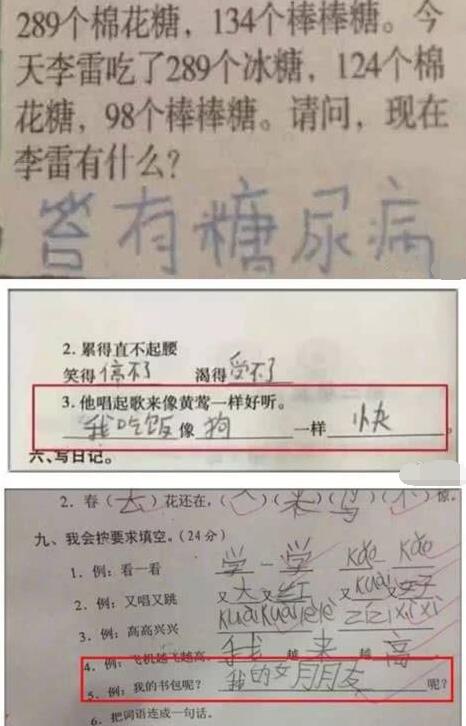 289个棉花糖，134个棒棒糖。今
天李雷吃了289个冰糖，124个棉
花糖，98个棒棒糖。请问，现在
李雷有什么？
答有糖尿病
2. 累得直不起腰
笑得停不了 渴得受不了
3. 他唱起歌来像黄莺一样好听。
我吃饭像狗一样快。
六、写日记。
2. 春（去）花还在，（人）（来）（鸟）（不）惊。
九、我会按要求填空。（24分）
1. 例：看一看 学一学 kǎo kǎo
2. 例：又唱又跳 又大又红 又kuài又好
3. 例：高高兴兴 kuài kuài lè lè zǐ zǐ xì xì
4. 例：飞机越飞越高。 我越来越高
5. 例：我的书包呢？ 我的女朋友呢？
6. 把词语连成一句话。